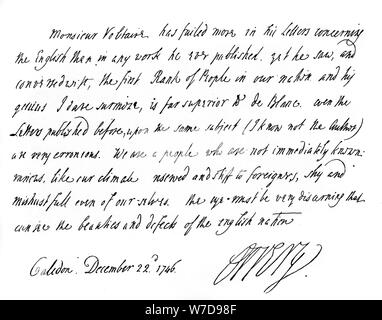 Monsieur Voltaire has failed more in his Letters concerning
the English than in any work he ever published. yet he saw, and
conversed with, the first Rank of People in our nation and his
genius I dare surmise, is far superior to de Blanc. even the
Letters published before, upon the same subject (I know not the Author)
are very erronious. We are a people who are not immediately known:
like our climate reserved and stiff to foreigners, shy and
mistrustfull even of our selves. the eye must be very discerning that
can see the beauties and defects of the english nation
Caledon. December 22d. 1746. Orrery.
alamy
Image ID: W7D98F
www.alamy.com